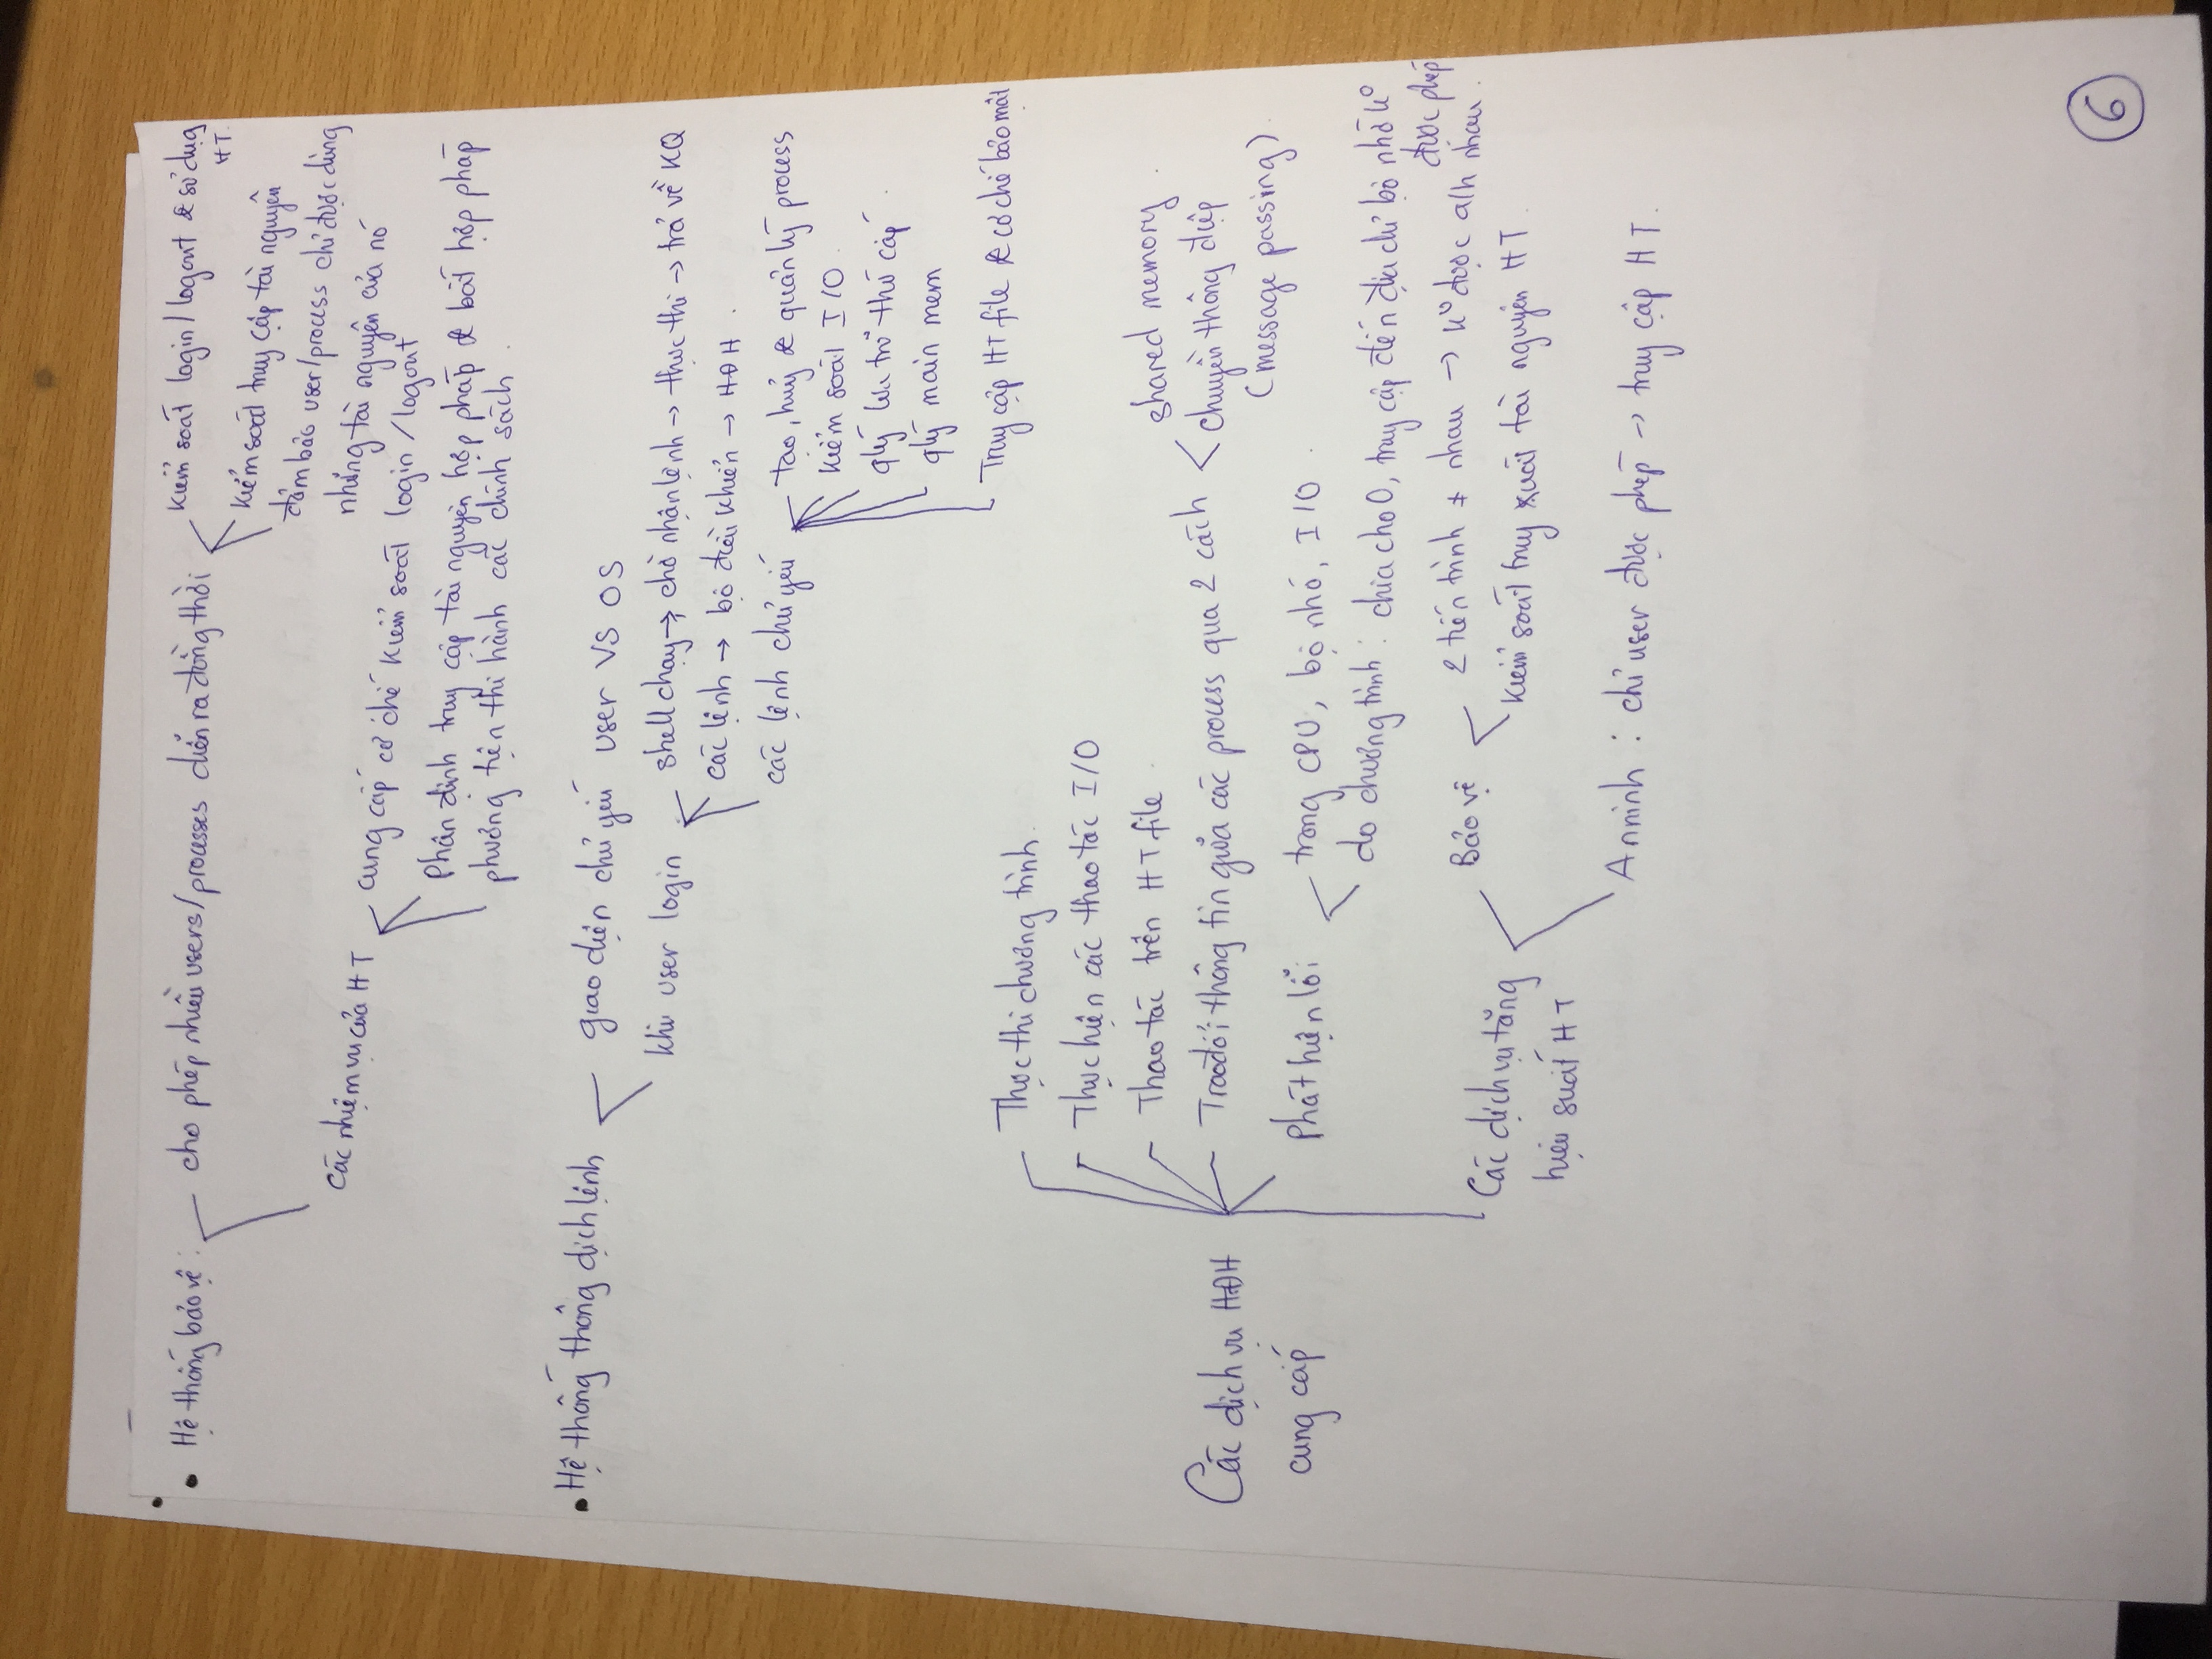 • Hệ thống bảo vệ :
cho phép nhiều users/processes diễn ra đồng thời
kiểm soát login/logout & sử dụng
HT.
kiểm soát truy cập tài nguyên
đảm bảo user/process chỉ được dùng
những tài nguyên của nó
Các nhiệm vụ của HT
cung cấp cơ chế kiểm soát login/logout
Phân định truy cập tài nguyên hợp pháp & bất hợp pháp
phương tiện thi hành các chính sách.
• Hệ thống thông dịch lệnh
giao diện chủ yếu user VS OS
khi user login
shell chạy → chờ nhận lệnh → thực thi → trả về KQ
các lệnh → bộ điều khiển → HĐH.
các lệnh chủ yếu
tạo, huỷ & quản lý process
kiểm soát I/O
qlý lưu trữ thứ cấp
qlý main mem
Truy cập HT file & cơ chế bảo mật
Các dịch vụ HĐH
cung cấp
Thực thi chương trình.
Thực hiện các thao tác I/O
Thao tác trên HT file
Trao đổi thông tin giữa các process qua 2 cách
shared memory.
chuyển thông điệp
(message passing)
Phát hiện lỗi
trong CPU, bộ nhớ, I/O.
do chương trình : chia cho 0, truy cập đến địa chỉ bộ nhớ k°
được phép
Các dịch vụ tăng
hiệu suất HT
Bảo vệ
2 tiến trình ≠ nhau → k° được a/h nhau.
Kiểm soát truy xuất tài nguyên HT
An ninh : chỉ user được phép → truy cập HT.
6